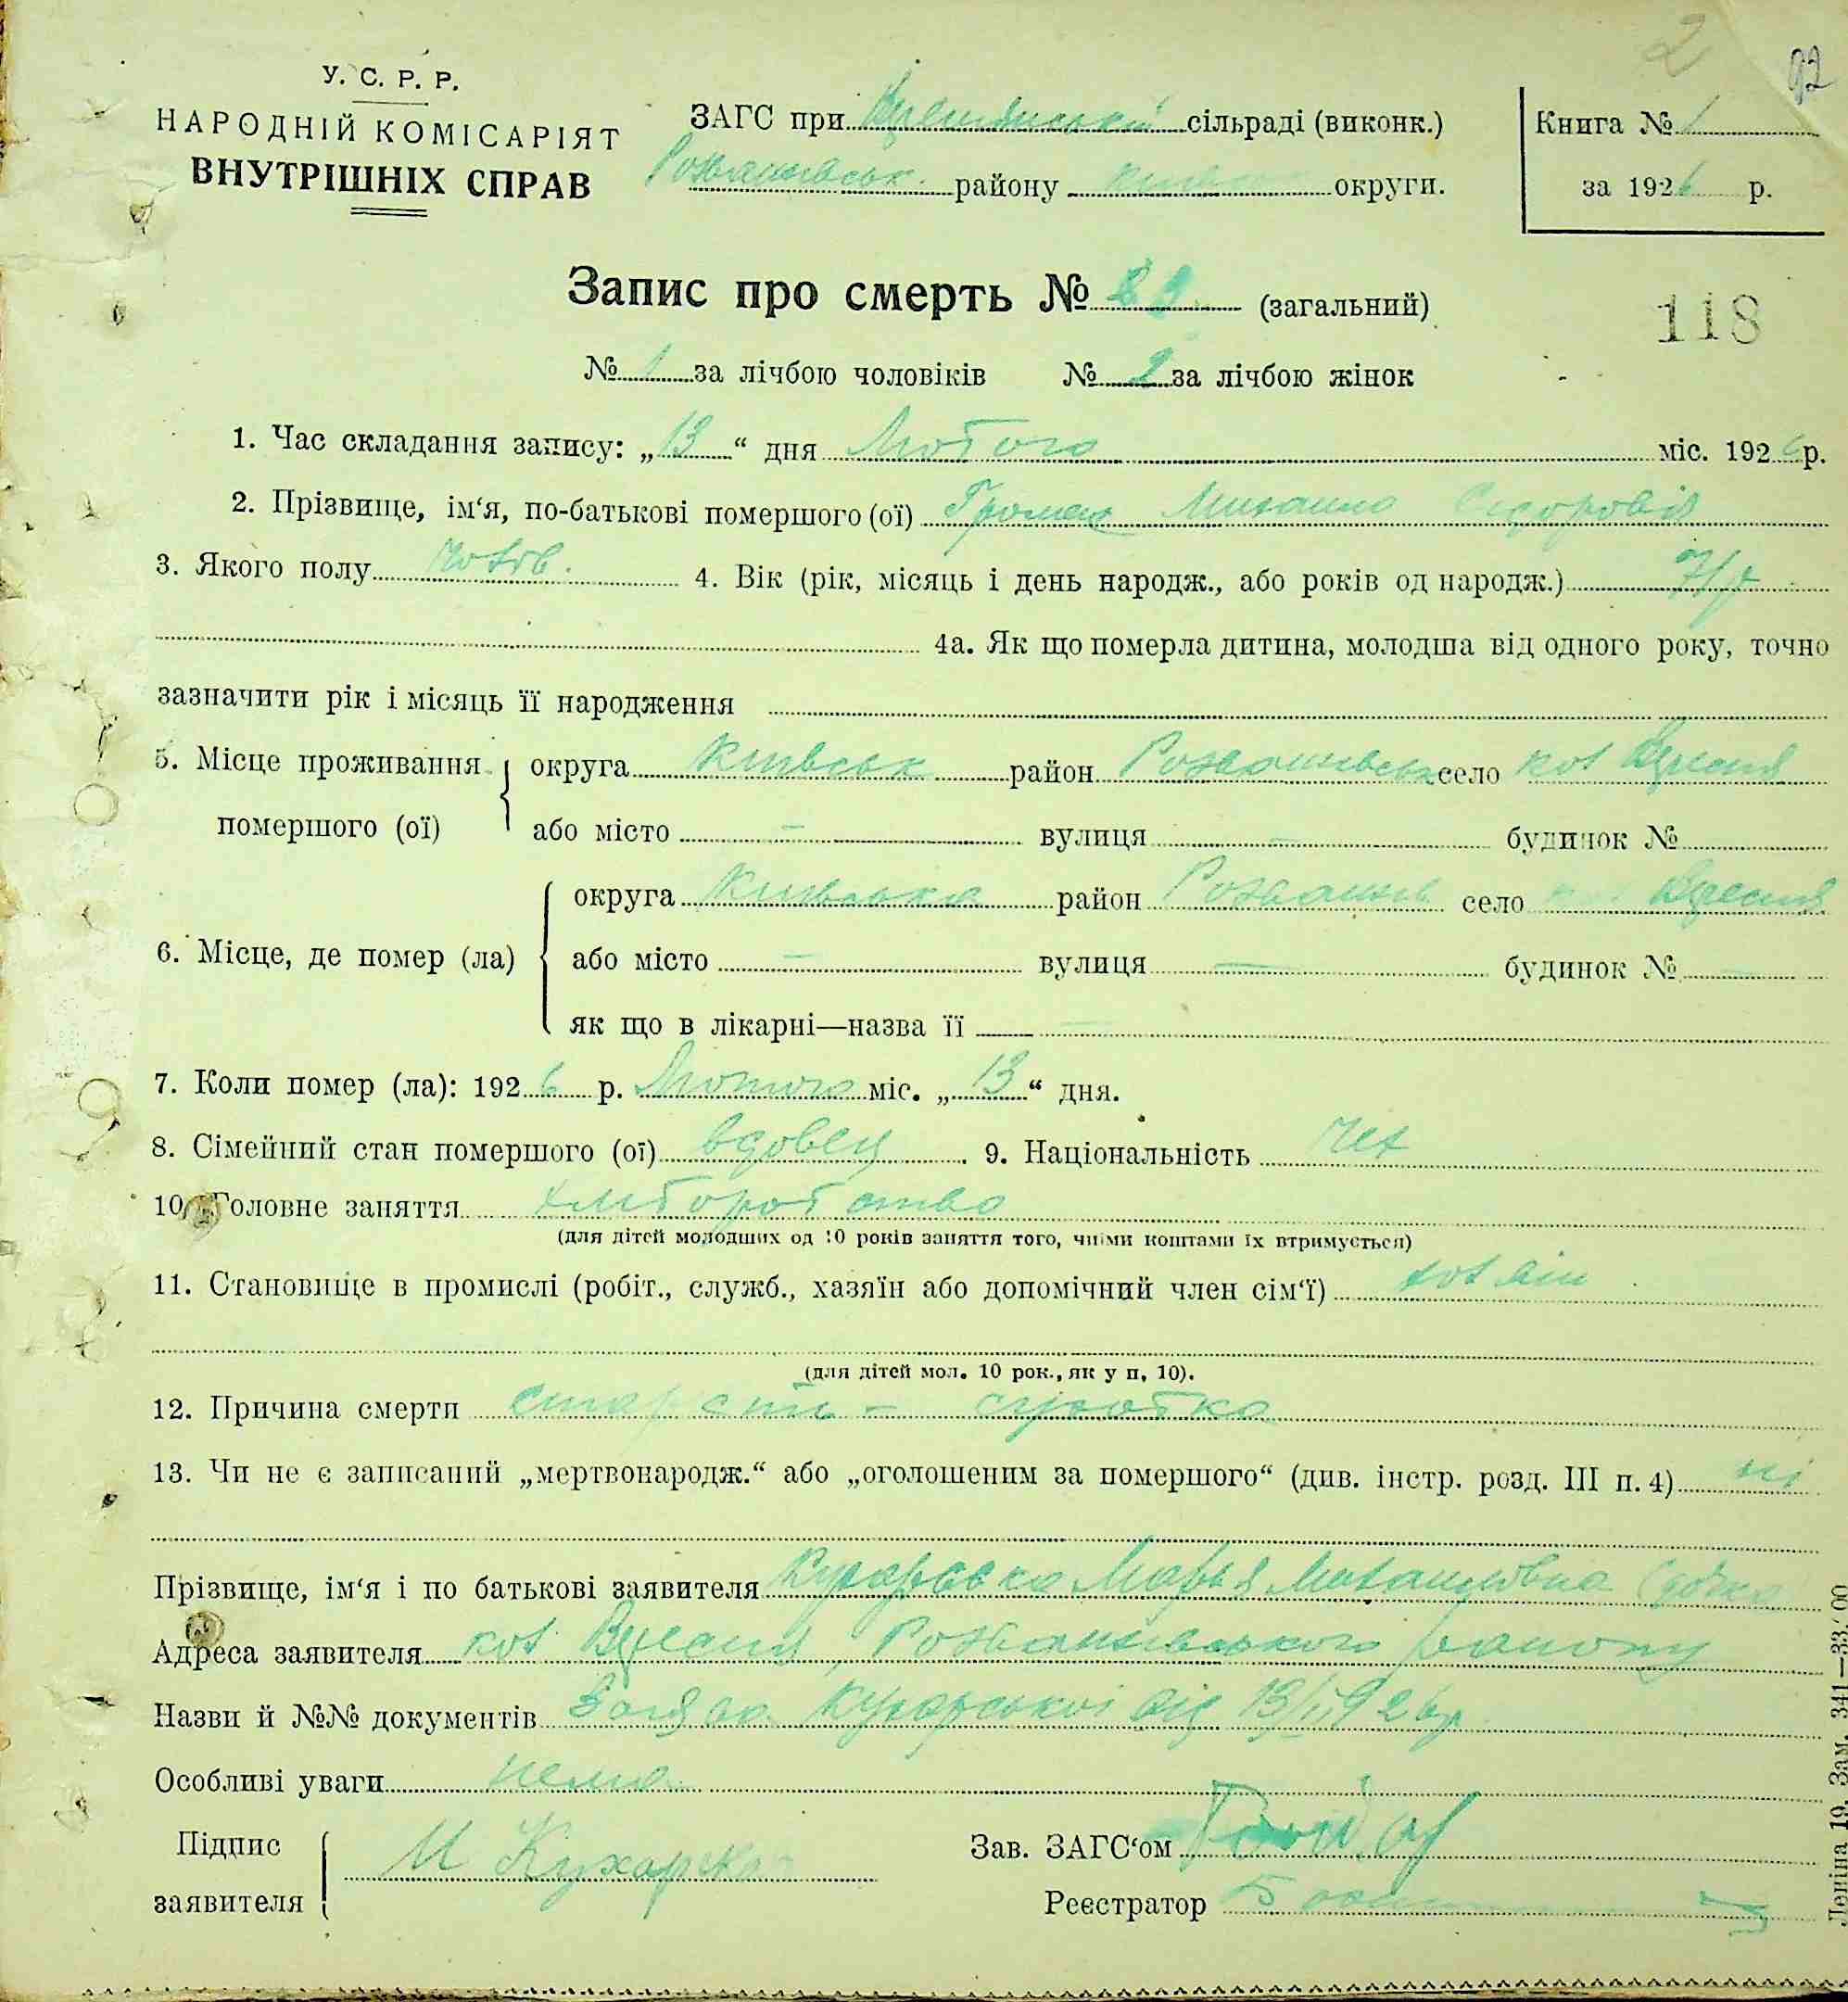 2
92
У. С. Р. Р.
НАРОДНІЙ КОМІСАРІЯТ
ВНУТРІШНІХ СПРАВ
ЗАГС при сільраді (виконк.)
району округи.
Книга № 1
за 1926 р.
Запис про смерть № (загальний)
118
№ 1 за лічбою чоловіків № 2 за лічбою жінок
1. Час складання запису: „13“ дня Лютого міс. 1926 р.
2. Прізвище, ім‘я, по-батькові помершого (ої) Сидоровіч
3. Якого полу 4. Вік (рік, місяць і день народж., або років од народж.)
4а. Як що померла дитина, молодша від одного року, точно
зазначити рік і місяць її народження
5. Місце проживання округа Київськ район село кол
помершого (ої) або місто — вулиця — будинок №
округа Київська район село
6. Місце, де помер (ла) або місто — вулиця — будинок № —
як що в лікарні—назва її —
7. Коли помер (ла): 1926 р. Лютого міс. „13“ дня.
8. Сімейний стан помершого (ої) вдовец 9. Національність чех
10. Головне заняття хліборобство
(для дітей молодших од 10 років заняття того, чиїми коштами їх втримується)
11. Становище в промислі (робіт., служб., хазяїн або допомічний член сім‘ї)
(для дітей мол. 10 рок., як у п. 10).
12. Причина смерти
13. Чи не є записаний „мертвонародж.“ або „оголошеним за помершого“ (див. інстр. розд. III п. 4) ні
Прізвище, ім‘я і по батькові заявителя Кухарська
Адреса заявителя кол району
Назви й №№ документів Кухарської від 13/II 1926 р
Особливі уваги нема
Підпис
заявителя М Кухарска
Зав. ЗАГС‘ом
Реєстратор
Леніна 19. Зам. 341—33.